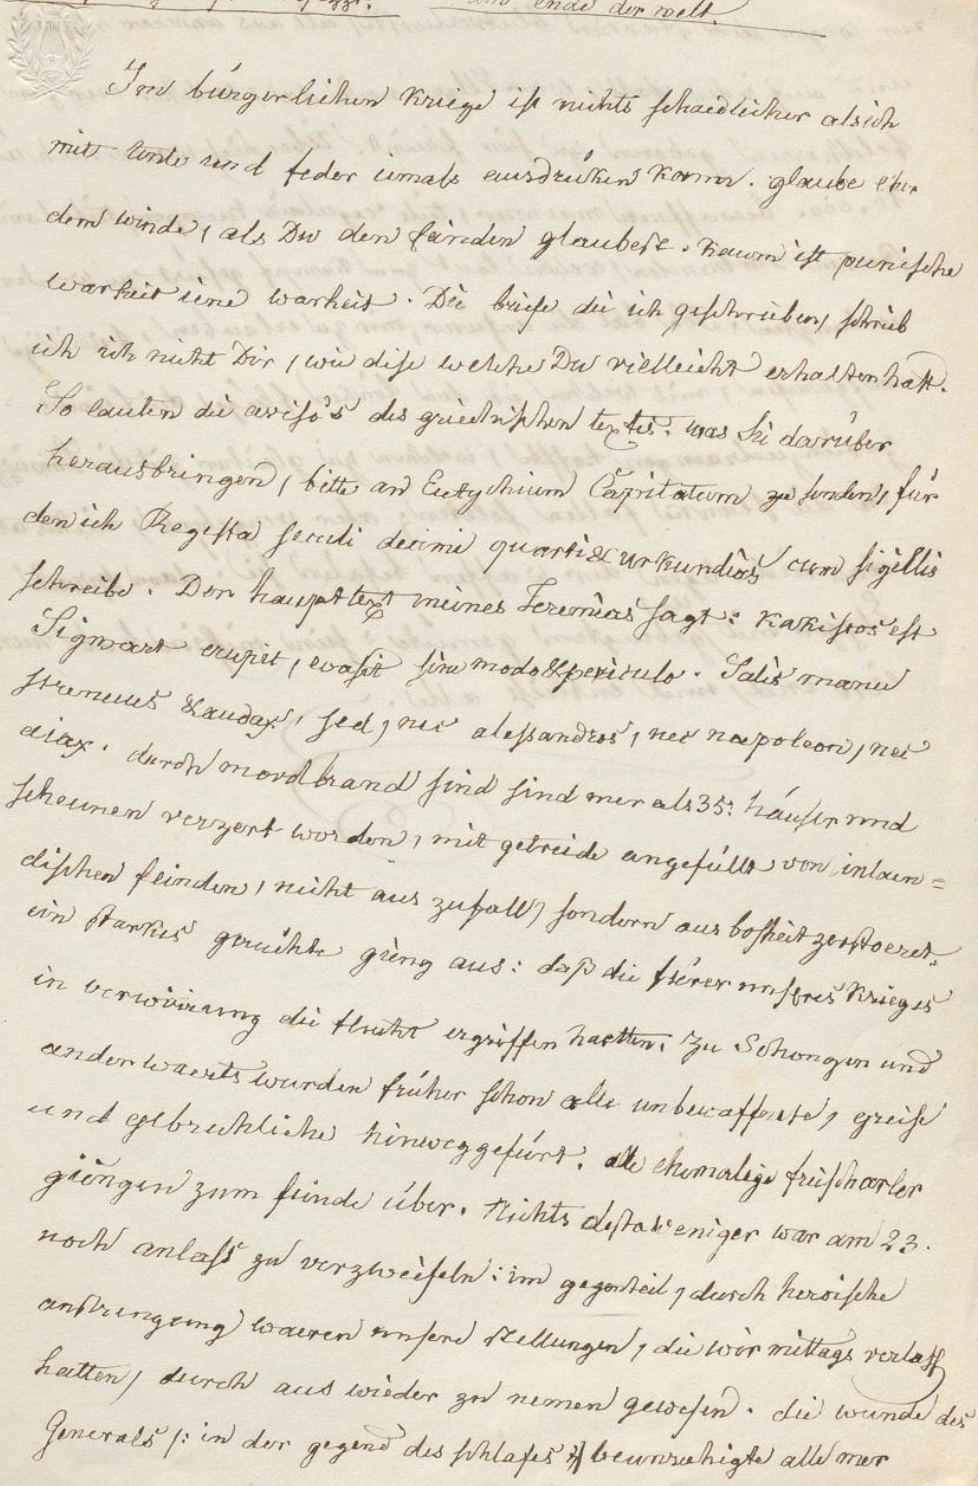 ende der welt.
Im bürgerlichen Kriege ist nichts schaedlicher als ich
mit tinte und feder iemals ausdrüken kann. glaube eher
dem winde, als Du den feinden glaubest. Kaum ist punische
warheit eine warheit. Die briefe die ich geschrieben, schrieb
ich ich nicht Dir, wie dise welche Du vielleicht erhalten hast.
So lauten die aviso's des griechischen textes. was Sie darüber
herausbringen, bitte an Eutychium zu senden, für
den ich Regesta seculi decimi quarti & urkundias cum sigillis
schreibe. Der haupttext meines Jeremias sagt: kakistos est
Sigwart erupit, evasit sine modo & periculo. Salis manu
strenuus & audax, sed, nec alessandros, nec napoleon, nec
aiax. durch mordbrand sind sind mer als 35. häuser und
scheunen verzert worden, mit getreide angefüllt von inlaen=
dischen feinden, nicht aus zufall, sondern aus bosheit zerstoeret.
ein starkes gerüchte gieng aus: daß die fürer unseres Krieges
in verwirrung die flucht ergriffen haetten. Zu Schongen und
anderwaerts wurden früher schon alle unbewaffnete, greise
und gebrechliche hinweggefürt. alle ehemalige freischarler
giengen zum feinde über. Nichts destoweniger war am 23.
noch anlass zu verzweifeln: im gegenteil, durch heroische
anstrengung waeren unsere stellungen, die wir mittags verlass
hatten, durch aus wieder zu nemen gewesen. die wunde des
Generals /: in der gegend des schlafes :/ beunruhigte alle mer